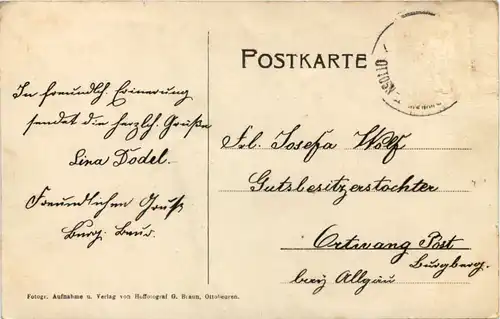 POSTKARTE
In freundlich. Erinerung
sendet die herzlch. Grüße
Lina Dodel.
Freundlichen Gruß
Burg.
Frl. Josefa Wolf
Gutsbesitzerstochter
Ortwang Post
Burgberg.
bayr Allgäu
Fotogr. Aufnahme u. Verlag von Hoffotograf G. Braun, Ottobeuren.